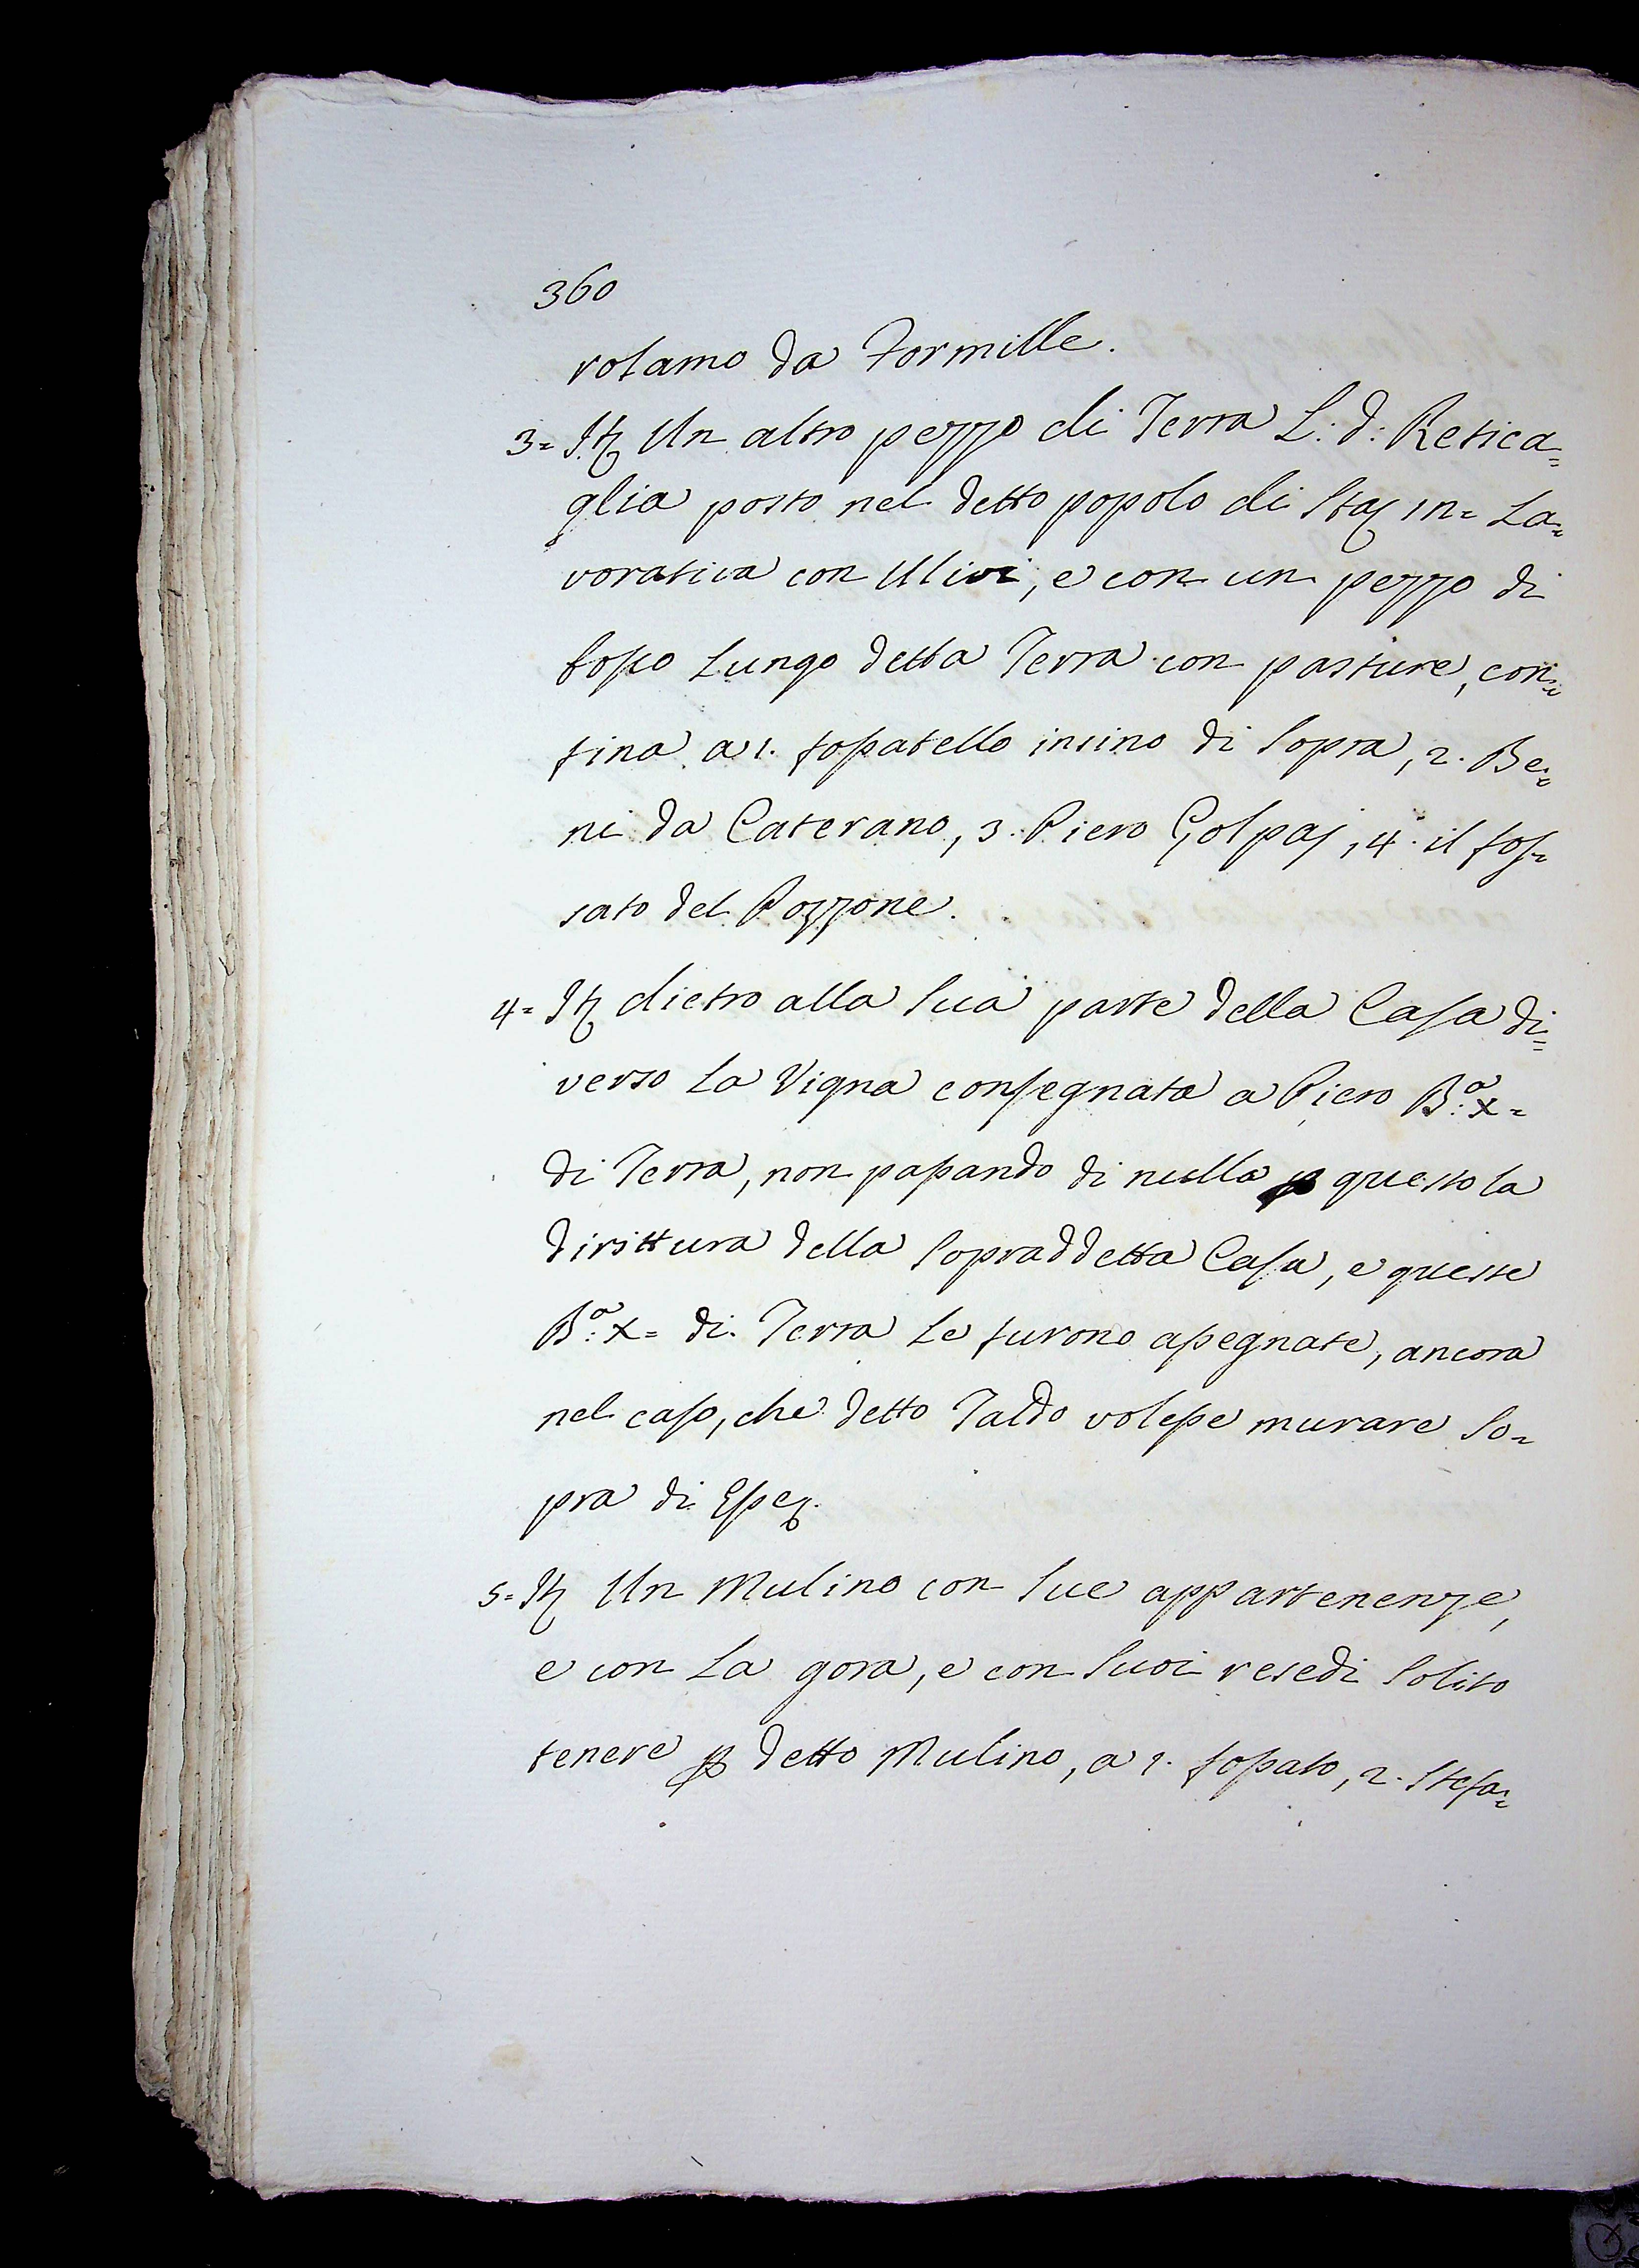 360
rolamo da Formille.
3= Itz Un altro pezzo di Terra L: d: Retica=
glia posto nel detto popolo di Staz in= La=
vorativa con Ulivi, e con un pezzo di
bosco Lungo detta Terra con pasture, con=
fina a 1. fossatello insino di Sopra, 2. Be=
ni da Caterano, 3. Piero Golpaj, 4. il fos=
sato del Pozzone.
4= Itz dietro alla Sua parte della Casa di=
verso La Vigna consegnata a Piero B.a X=
di Terra, non passando di nulla p questo la
dirittura della Sopraddetta Casa, e queste
B.a X= di Terra Le furono assegnate, ancora
nel caso, che detto Taldo volesse murare So=
pra di Essez.
5= Itz Un Mulino con Sue appartenenze,
e con La gora, e con Suoi resedi Solito
tenere p detto Mulino, a 1. fossato, 2. Stefa=